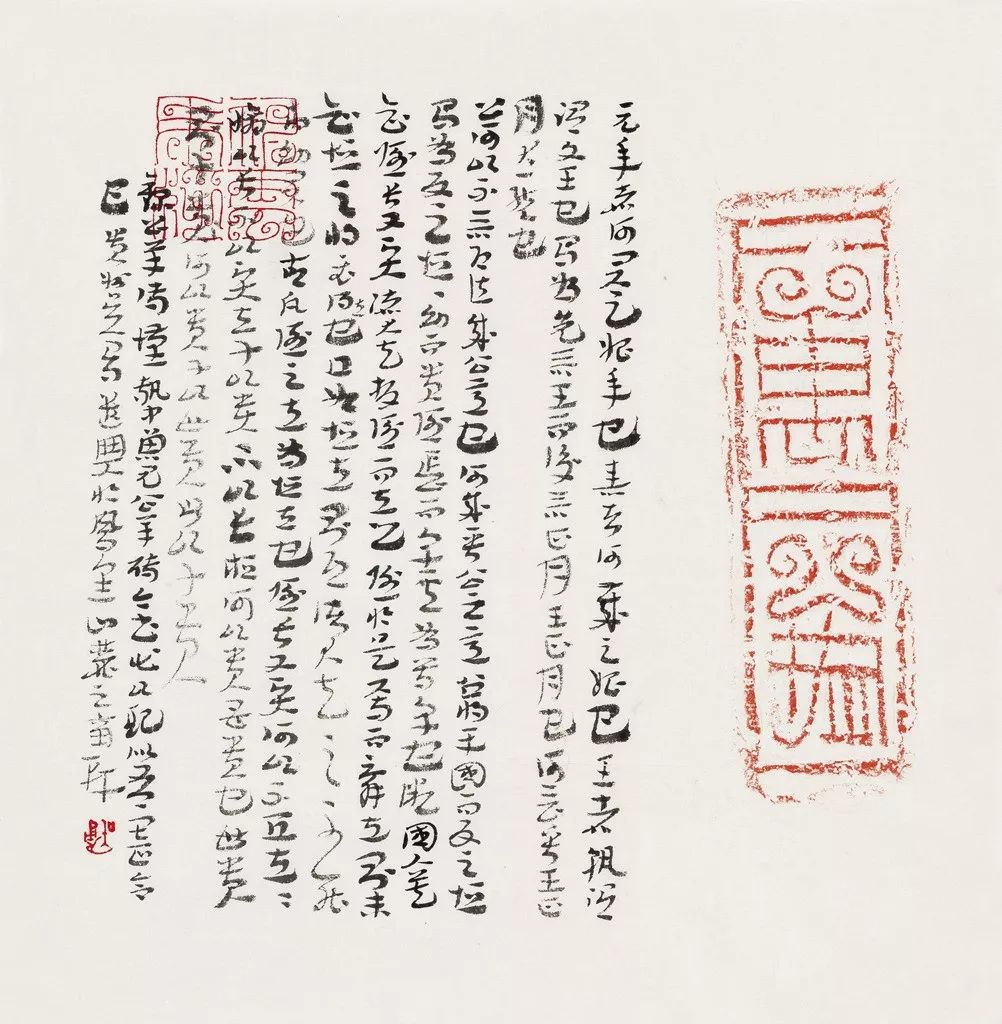 元年者何君之始年也春者何歲之始也王者孰謂
謂文王也曷為先言王而後言正月王正月也何言乎王正
月大一統也
公何以不言即位成公意也何成乎公之意公將平國而反之桓
曷為反之桓桓幼而貴隱長而卑其為尊卑也微國人莫
知隱長又賢諸大夫扳隱而立之隱於是焉而辭立則未
知桓之將必得立也且如桓立則恐諸大夫之不能
相幼君也故凡隱之立為桓立也隱長又賢何以不宜立立
適以長不以賢立子以貴不以長桓何以貴母貴也母貴
則子何以貴子以母貴母以子貴
公羊傳